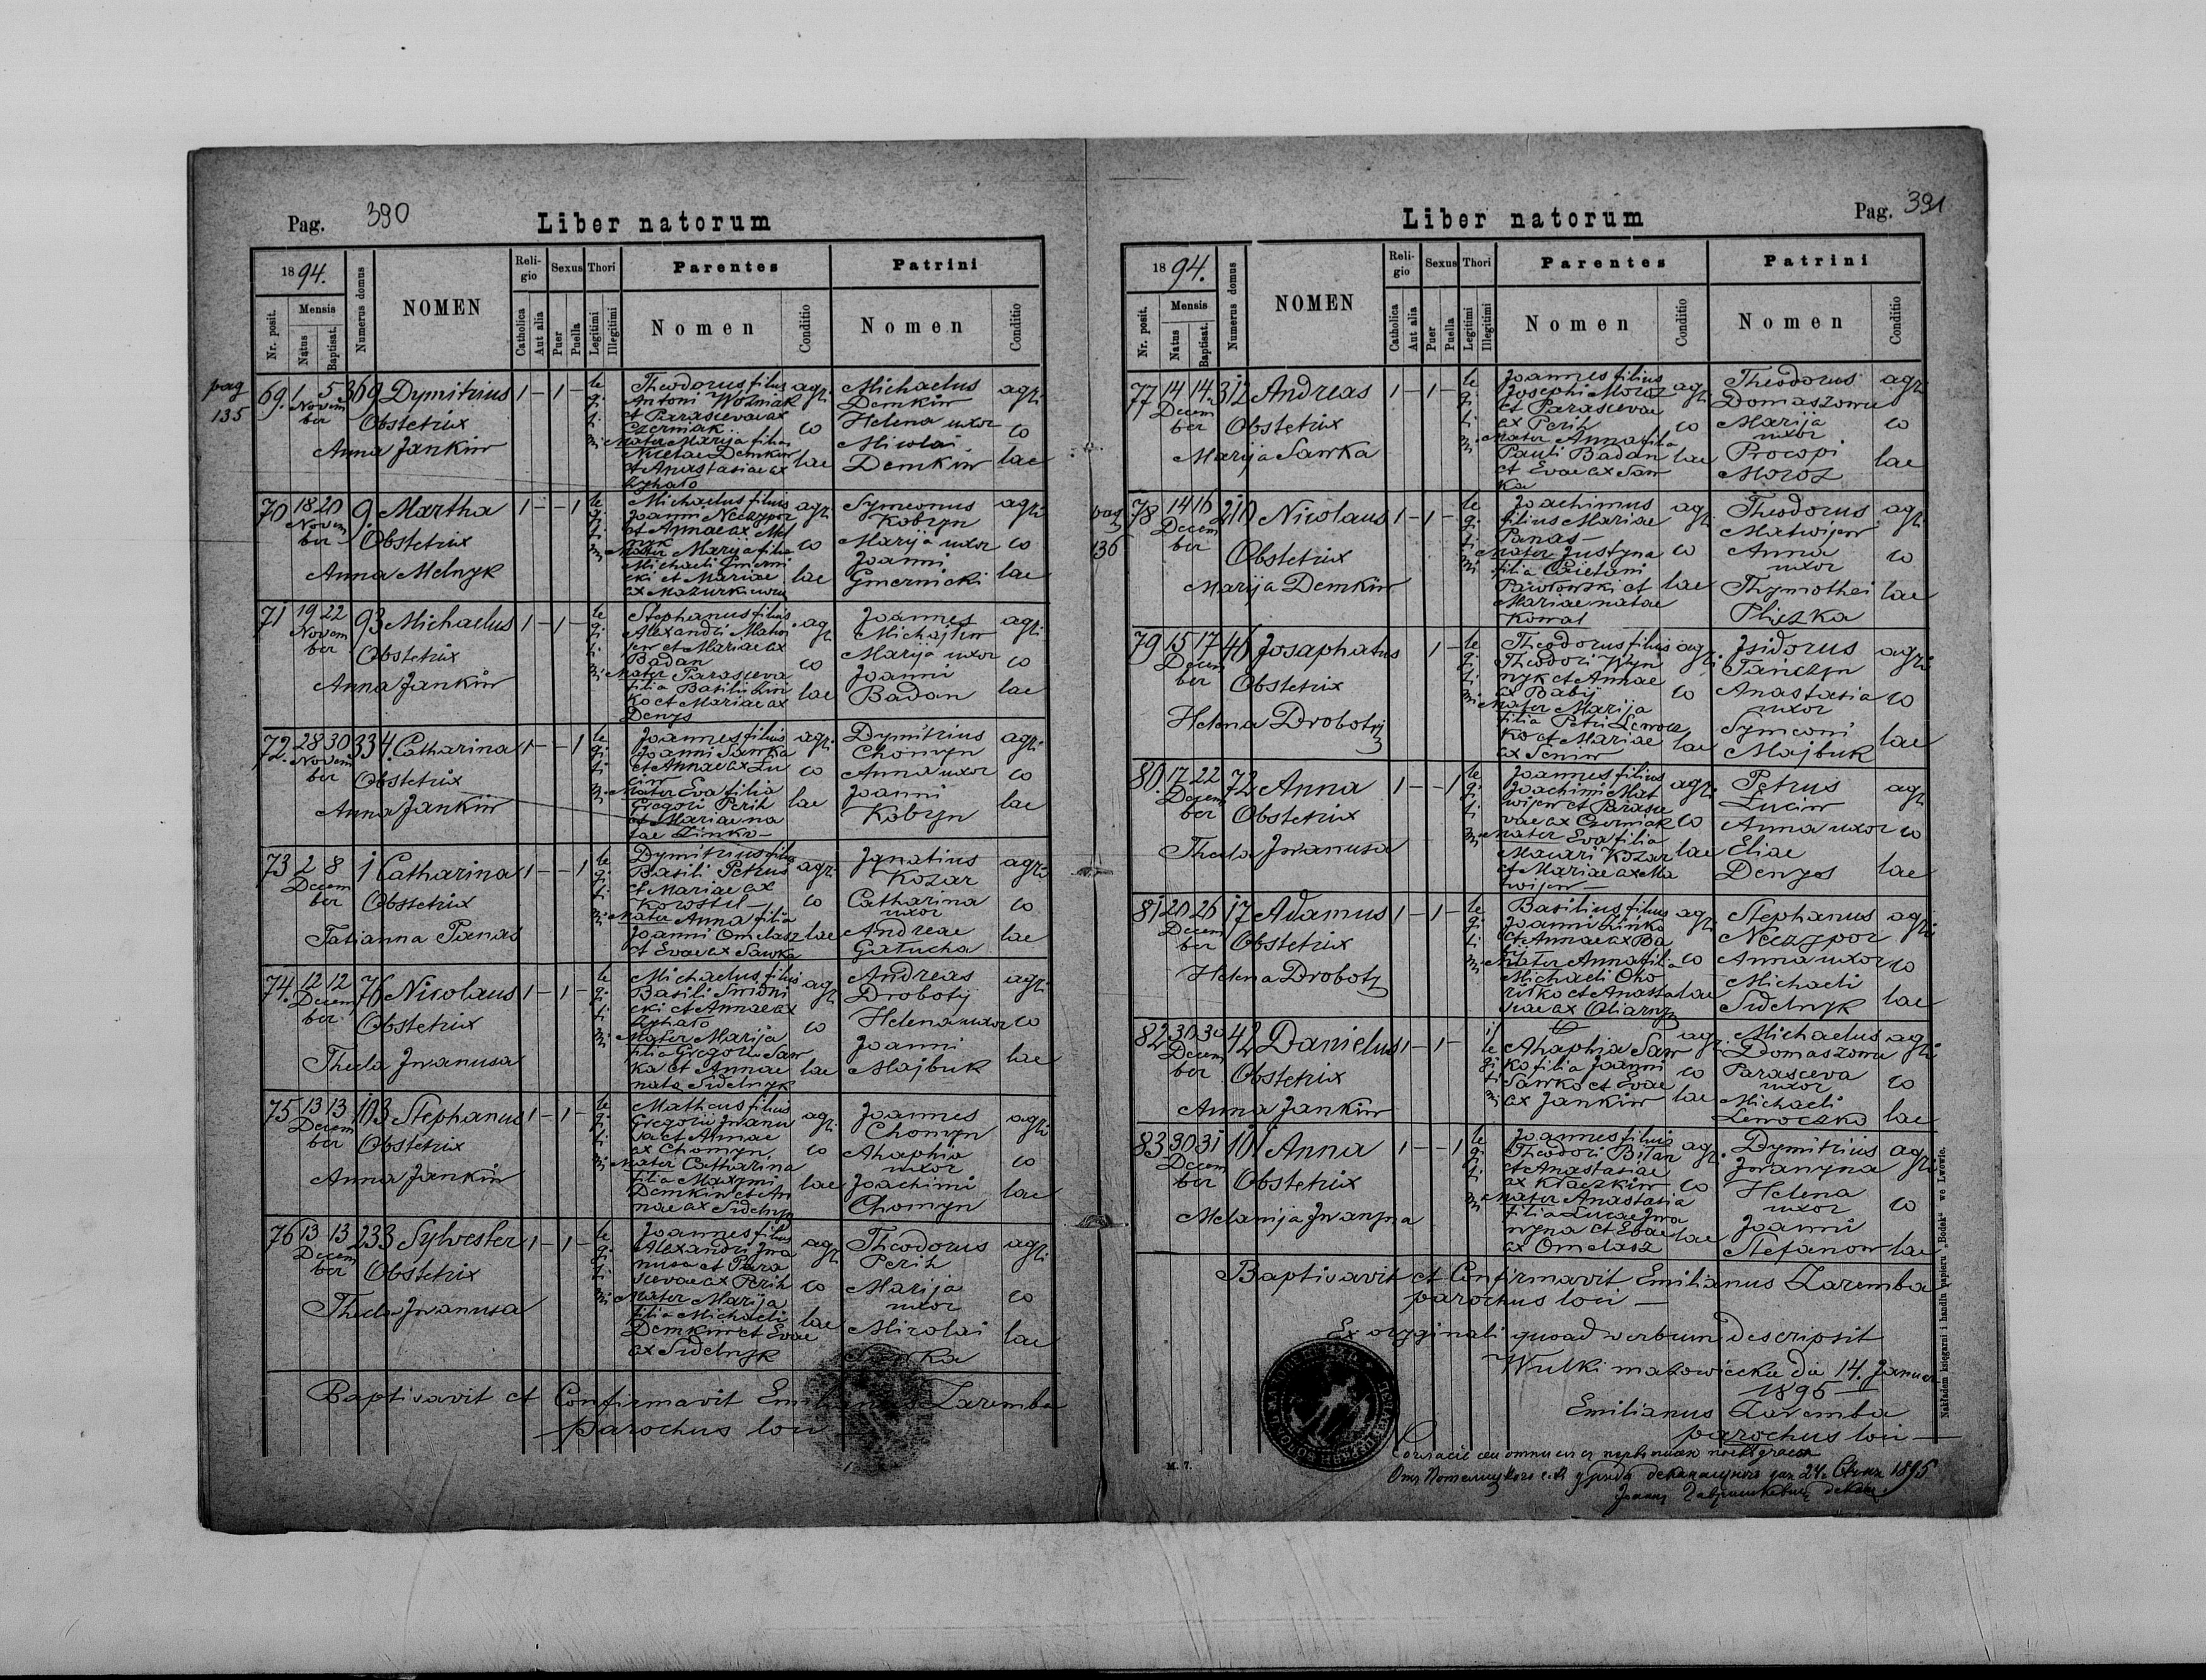 Pag. 390
Liber natorum
1894.
Nr. posit.
Mensis
Natus
Baptisat.
Numerus domus
NOMEN
Religio
Catholica
Aut alia
Sexus
Puer
Puella
Thori
Legitimi
Illegitimi
Parentes
Nomen
Conditio
Patrini
Nomen
Conditio
pag 135
69. 1 5 369 Dymitrius 1 – 1 –
Novem
ber
Obstetrix
Anna Jankiw
le
gi
ti
mi
Theodorus filius
Antoni Woźniak
et Parascevae ax
Czerniak
Mater Marija filia
Nicetae Demkiw
et Anastasiae ax
agri
co
lae
Michaelus
Demkiw
Helena uxor
Nicolai
Demkiw
agri
co
lae
70 18 20 9. Martha 1 – – 1
Novem
ber
Obstetrix
Anna Melnyk
le
gi
ti
mi
Michaelus filius
Joanni Neczypor
et Annae ax Mel
nyk
Mater Marija filia
Michaeli Gmerni
cki et Mariae
agri
co
lae
Symeonus
Kobryn
Marija uxor
Joanni
Gmernicki
agri
co
lae
71 19 22 93 Michaelus 1 – 1 –
Novem
ber
Obstetrix
Anna Jankiw
le
gi
ti
mi
Stephanus filius
Alexandri Matwi
jew et Mariae ax
Badan
Mater Parasceva
filia Basilii Zin
ko et Mariae ax
Denys
agri
co
lae
Joannes
Michajliw
Marija uxor
Joanni
Badan
agri
co
lae
72. 28 30 334. Catharina 1 – – 1
Novem
ber
Obstetrix
Anna Jankiw
le
gi
ti
mi
Joannes filius
Joanni Sawka
et Annae ax Lu
ciw
Mater Eva filia
Gregori Perih
et Mariae na
tae Zinko –
agri
co
lae
Dymitrius
Chomyn
Anna uxor
Joanni
Kobryn
agri
co
lae
73 2 8 1 Catharina 1 – – 1
Decem
ber
Obstetrix
Tatianna Panas
le
gi
ti
mi
Dymitrius filius
Basili Petrus
et Mariae ax
Korostil –
Mater Anna filia
Joanni Omelasz
et Evae ax Sawka
agri
co
lae
Ignatius
Kozar
Catharina
uxor
Andreae
Gałucha
agri
co
lae
74. 12 12 76 Nicolaus 1 – 1 –
Decem
ber
Obstetrix
Thecla Iwanusa
le
gi
ti
mi
Michaelus filius
Basili
cki et Annae ax
Mater Marija
filia Gregorii Saw
ka et Annae
nata Sidelnyk
agri
co
lae
Andreas
Drobotij
Helena uxor
Joanni
Majbuk
agri
co
lae
75 13 13 103 Stephanus 1 – 1 –
Decem
ber
Obstetrix
Anna Jankiw
le
gi
ti
mi
Matheus filius
Gregorii Iwanu
sa et Annae
ax Chomyn.
Mater Catharina
filia Maxymi
Demkiw et An
nae ax Sidelnyk
agri
co
lae
Joannes
Chomyn
Ahaphia
uxor
Joachimi
Chomyn
agri
co
lae
76 13 13 233 Sylvester 1 – 1 –
Decem
ber
Obstetrix
Thecla Iwanusa
le
gi
ti
mi
Joannes filius
Alexandri Iwa
nusa et Para
scevae ax Perih
Mater Marija
filia Michaeli
Demkiw et Evae
ax Sidelnyk
agri
co
lae
Theodorus
Perih
Marija
uxor
Nicolai
Sawka
agri
co
lae
Baptisavit et Confirmavit Emilianus Zaremba
parochus loci
Liber natorum
Pag. 391
1894.
Nr. posit.
Mensis
Natus
Baptisat.
Numerus domus
NOMEN
Religio
Catholica
Aut alia
Sexus
Puer
Puella
Thori
Legitimi
Illegitimi
Parentes
Nomen
Conditio
Patrini
Nomen
Conditio
77 14 14 312 Andreas 1 – 1 –
Decem
ber
Obstetrix
Marija Sawka
le
gi
ti
mi
Joannes filius
Josephi Moroz
et Parascevae
ax Perih
Mater Anna filia
Pauli Badan
et Evae ax Saw
ka
agri
co
lae
Theodorus
Domaszowu
Marija
uxor
Procopi
Moroz
agri
co
lae
pag 136
78 14 16 210 Nicolaus 1 – 1 –
Decem
ber
Obstetrix
Marija Demkiw
le
gi
ti
mi
Joachimus
filius Mariae
Panas –
Mater Justyna
filia Caietani
Pawłowski et
Mariae natae
Kowal
agri
co
lae
Theodorus
Matwijew
Anna
uxor
Thymothei
Pliszka
agri
co
lae
79 15 17 46 Josaphatus 1 –
Decem
ber
Obstetrix
Helena Drobotij
le
gi
ti
mi
Theodorus filius
Theodori
nyk et Annae
ax Babij
Mater Marija
filia Petri Lewocz
ko et Mariae
ax Seniw
agri
co
lae
Isidorus
Tanczyn
Anastasia
uxor
Symeoni
Majbuk
agri
co
lae
80. 17 22 72 Anna 1 – – 1
Decem
ber
Obstetrix
Thecla Iwanusa
le
gi
ti
mi
Joannes filius
Joachimi Mat
wijew et Parasce
vae ax Czerniak
Mater Eva filia
Macari Kozar
et Mariae ax Ma
twijew –
agri
co
lae
Petrus
Luciw
Anna uxor
Eliae
Denys
agri
co
lae
81 20 26 17 Adamus 1 – 1 –
Decem
ber
Obstetrix
Helena Drobotij
le
gi
ti
mi
Basilius filius
Joanni Zinko
et Annae ax Ba
Mater Anna filia
Michaeli Oho
riłko et Anasta
siae ax Oliarnyk
agri
co
lae
Stephanus
Neczypor
Anna uxor
Michaeli
Sidelnyk
agri
co
lae
82 30 30 42 Danielus 1 – 1 –
Decem
ber
Obstetrix
Anna Jankiw
il
le
gi
ti
mi
Ahaphia Saw
ko filia Joanni
Sawko et Evae
ax Jankiw
agri
co
lae
Michaelus
Domaszowu
Parasceva
uxor
Michaeli
Lewoczko
agri
co
lae
83 30 31 101 Anna 1 – – 1
Decem
ber
Obstetrix
Melanija Iwanyna
le
gi
ti
mi
Joannes filius
Theodori Bilan
et Anastasiae
ax Kraczkiw
Mater Anastasia
filia Lucae Iwa
nyna et Evae
ax Omelasz
agri
co
lae
Dymitrius
Iwanyna
Helena
uxor
Joanni
Stefanow
agri
co
lae
Baptisavit et Confirmavit Emilianus Zaremba
parochus loci –
Ex oryginali quoad verbum descripsit
Wulki mazowiecka die 14. Januar
1895
Emilianus Zaremba
parochus loci –
M. 7.
Nakładem księgarni i handlu papieru „Bodek“ we Lwowie.